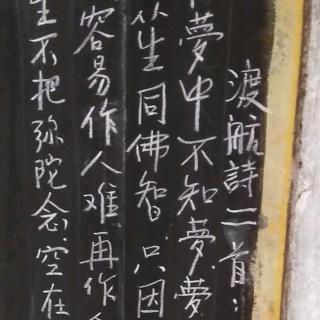 渡航詩一首:
夢中不知夢.夢
生同佛智.只因
容易作人难再作
生不把弥陀念.空在